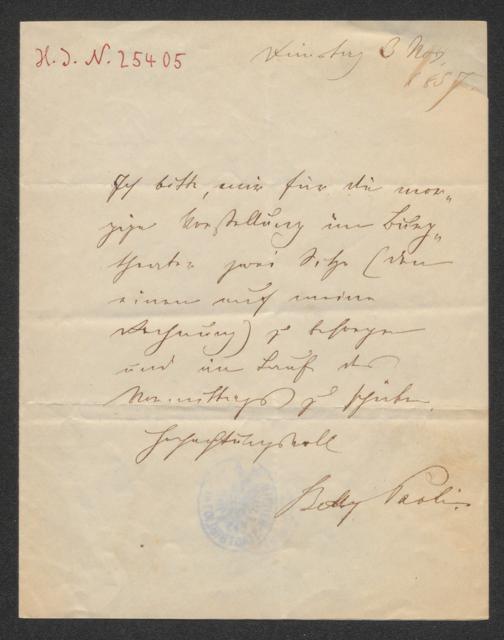 H. J. N. 25405
Dienstag 3 Nov.
1857.
Ich bitte, mir für die mor„
gige Vorstellung im Burg„
theater zwei Sitze (den
einen auf meine
Rechnung) zu besorgen
und im Laufe des
Vormittags zu schicken.
Hochachtungsvoll
Betty Paoli